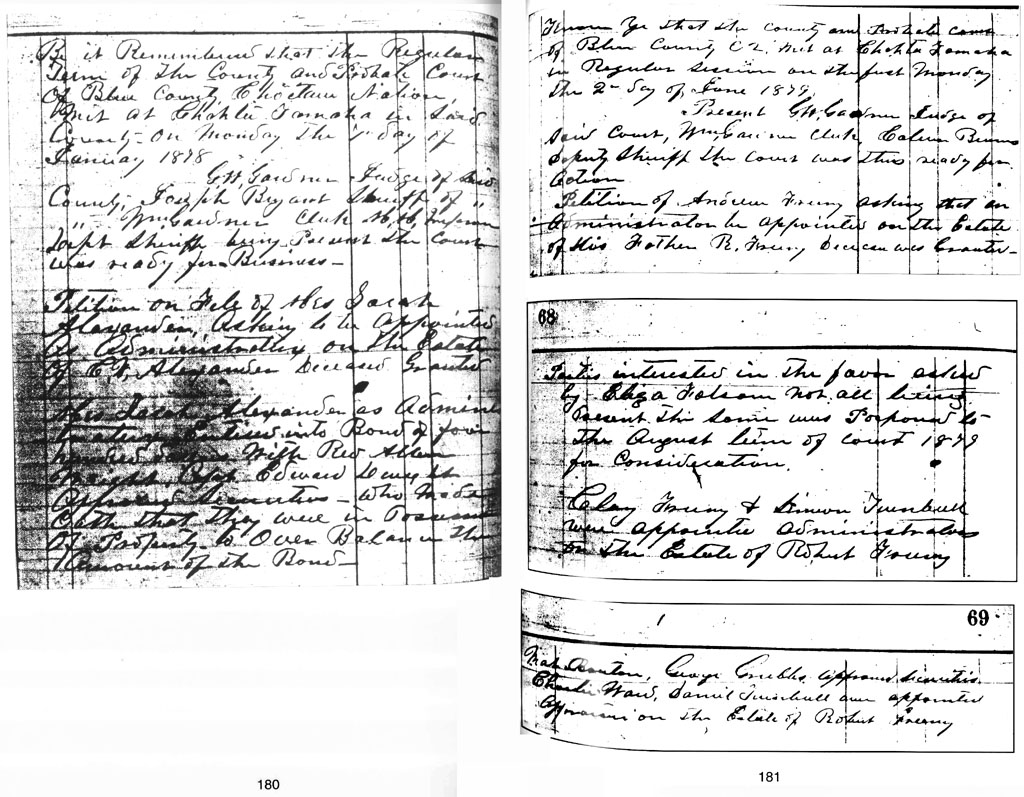 Be it Remembered that the Regular
Term of the County and Probate Court
Of Blue County Choctaw Nation,
Met at Chahta Tamaha in Said
County on Monday the day of
January 1878
G.W. Gardner Judge of Said
County, Joseph Bryant Sheriff of "
" Wm Gardner Clerk
Dept Sheriff being Present the Court
was ready for Business—
Petition on File of Mrs Sarah
Alexander, Asking to be Appointed
As Administratrix on the Estate
Of Alexander Deceased Granted
Mrs Sarah Alexander as Admin
Entered into Bond of four
hundred With Rev Allen
Wright, Capt Edward Dwight
Securities — who Made
Oath that they were in
Of Property to Over Balance the
Amount of the Bond—
180
Know Ye that the County and Probate Court
of Blue County C.N. Met at Chahta Tamaha
in Regular Session on the first Monday
the 2nd day of June 1879.
Present G.W. Gardner Judge of
said Court, Wm Gardner Clerk, Calvin
Deputy Sheriff the Court was thus ready for
Action
Petition of Andrew Freny asking that an
Administrator be appointed on the Estate
of His Father R. Freny Deceased was Granted—
68
Parties interested in the favor asked
by Eliza Folsom Not all being
Present the same was Posponed to
the August term of court 1879
for Consideration.
Clay Freny & Simon Turnbull
were appointed administrators
on the Estate of Robert Freny
69
George approved securities.
Charlie Ward, Daniel Turnbull were appointed
on the Estate of Robert Freny
181